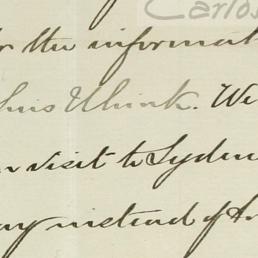 Carlos
r the informat
his Think. We
n visit to Sydne
ay instead of